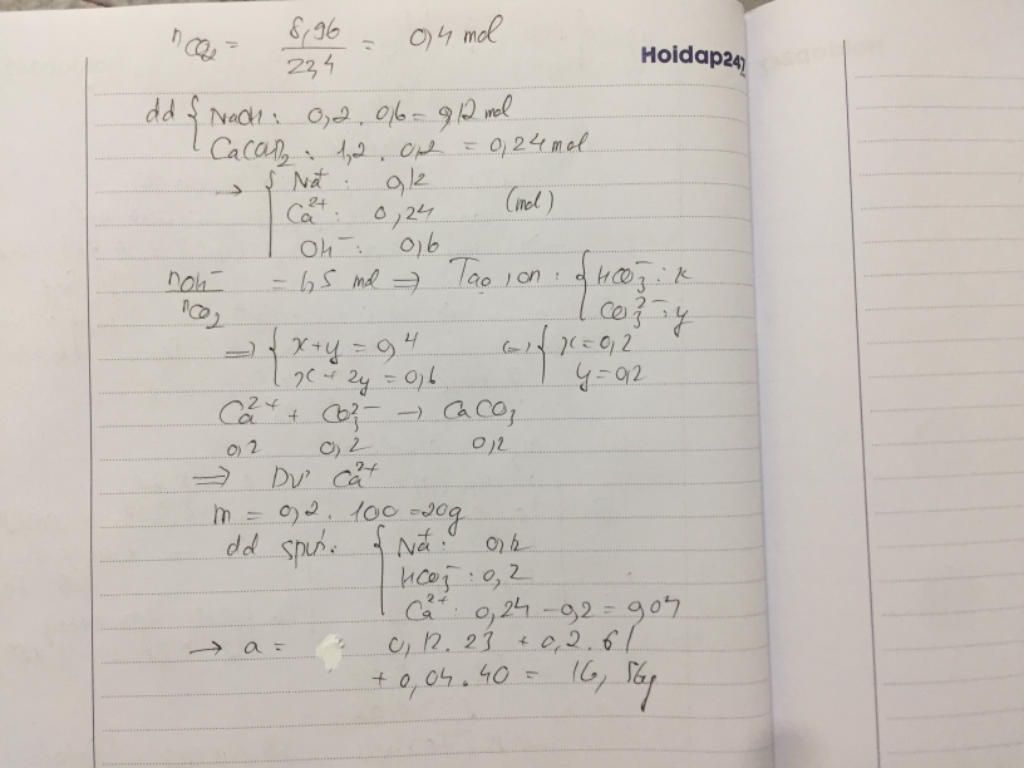 nCO2 = 8,96 / 22,4 = 0,4 mol
Hoidap247
dd { NaOH : 0,2 . 0,6 = 0,12 mol
Ca(OH)2 : 1,2 . 0,2 = 0,24 mol
→ { Na+ : 0,12
Ca2+ : 0,24 (mol)
OH- : 0,6
nOH- / nCO2 = 1,5 mol ⇒ Tạo ion : { HCO3- : x
CO3 2- : y
⇒ { x + y = 0,4 ↔ { x = 0,2
x + 2y = 0,6 y = 0,2
Ca2+ + CO3 2- → CaCO3
0,2 0,2 0,2
⇒ Dư Ca2+
m = 0,2 . 100 = 20g
dd spứ : { Na+ : 0,12
HCO3- : 0,2
Ca2+ : 0,24 - 0,2 = 0,04
→ a = 0,12 . 23 + 0,2 . 61
+ 0,04 . 40 = 16,56g